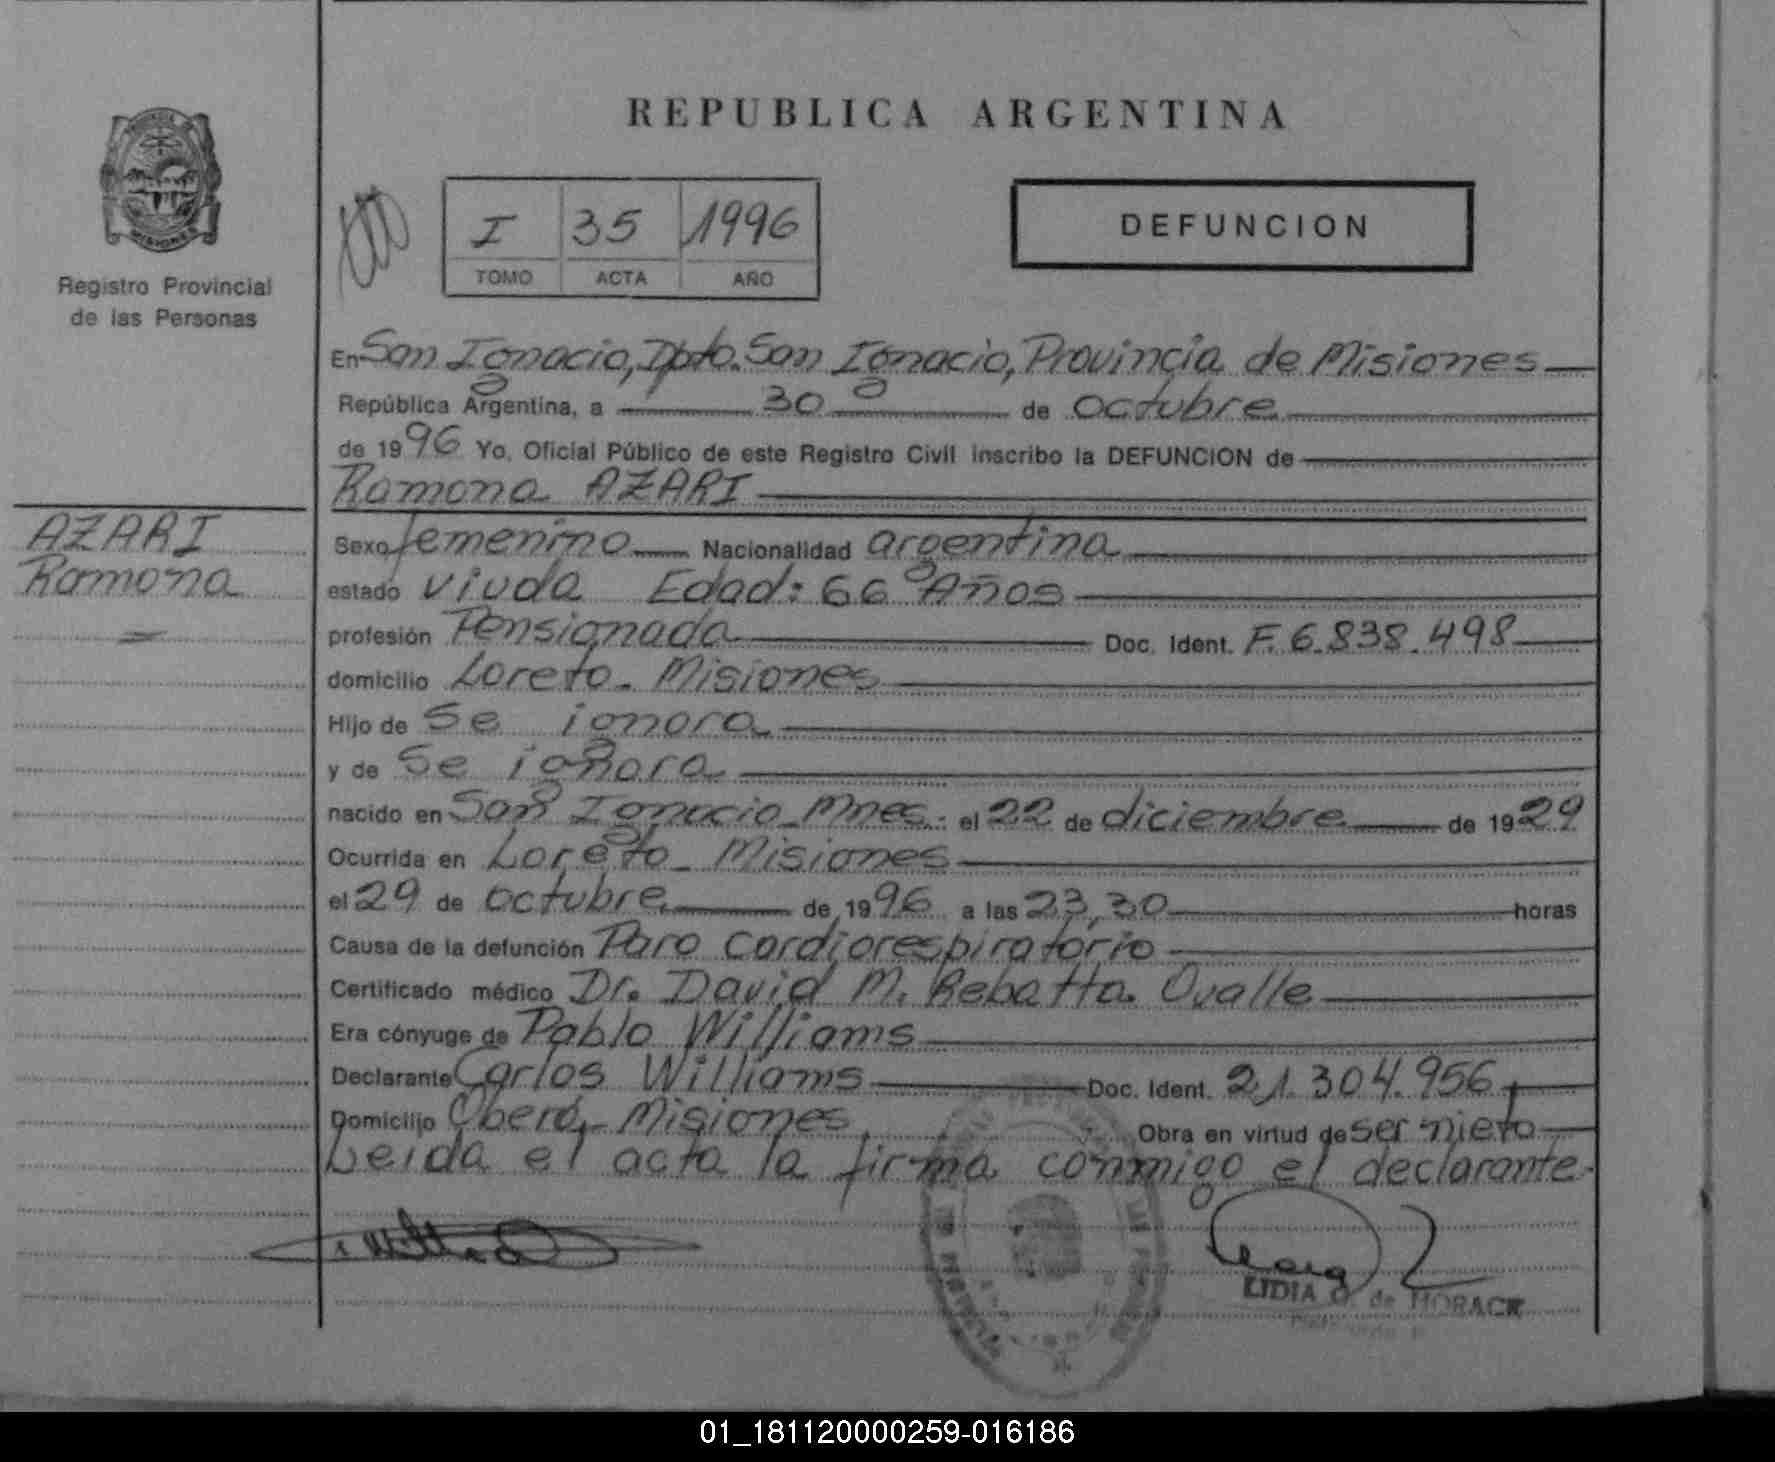 REPUBLICA ARGENTINA
MISIONES
Registro Provincial
de las Personas
I 35 1996
TOMO ACTA AÑO
DEFUNCION
En San Ignacio, Dpto. San Ignacio, Provincia de Misiones
República Argentina, a 30 de octubre
de 1996 Yo, Oficial Público de este Registro Civil inscribo la DEFUNCION de
Ramona AZARI
AZARI
Ramona
Sexo femenino Nacionalidad argentina
estado viuda Edad: 66 Años
profesión Pensionada Doc. Ident. F. 6.838.498
domicilio Loreto - Misiones
Hijo de Se ignora
y de Se ignora
nacido en San Ignacio Mnes. el 22 de diciembre de 1929
Ocurrida en Loreto - Misiones
el 29 de octubre de 1996 a las 23,30 horas
Causa de la defunción Paro cardiorespiratorio
Certificado médico Dr. David M. Rebatta Ovalle
Era cónyuge de Pablo Williams
Declarante Carlos Williams Doc. Ident. 21.304.956
Domicilio Oberá - Misiones Obra en virtud de ser nieto
Leida el acta la firma conmigo el declarante
LIDIA de HORACK
01_181120000259-016186